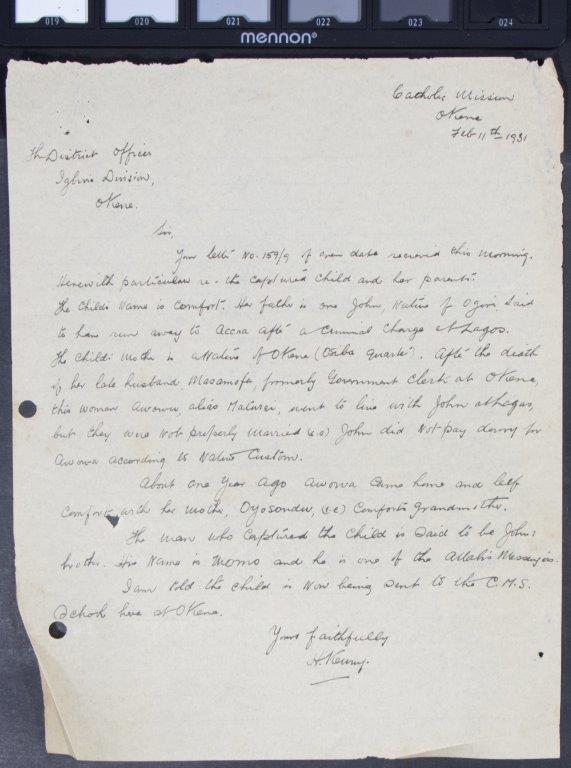 019 020 021 022 023 024
mennon®
Catholic Mission
Okene
Feb 11th 1931
The District Officer
Igbira Division,
Okene.
Sir,
Your letter No. 159/9 of even date received this morning.
Herewith particulars re - the captured child and her parents.
The Child's Name is Comfort. Her father is one John, Native of Ogori, said
to have run away to Accra after a criminal charge at Lagos.
The Child's Mother is a Native of Okene (Oziba Quarter). After the death
of her late husband Masamofa, formerly Government Clerk at Okene,
this woman Awowa, alias Matusi, went to live with John at Lagos,
but they were not properly married (i.e) John did not pay dowry for
Awowa according to Native Custom.
About one Year ago Awowa came home and left
Comfort with her mother, Oyosondu, (i.e) Comfort's Grandmother.
The man who captured the child is said to be John's
brother. His Name is Momo and he is one of the Attah's Messengers.
I am told the child is now being sent to the C.M.S.
School here at Okene.
Yours faithfully
H. Kenny.